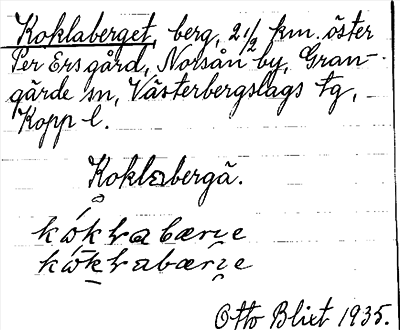 Koklaberget, berg, 2 1/2 km. öster
Per Ersgård, Norsån by, Gran-
gärde sn, Västerbergslags tg,
Kopp. l.
Koklabergä.
Otto Blixt 1935.